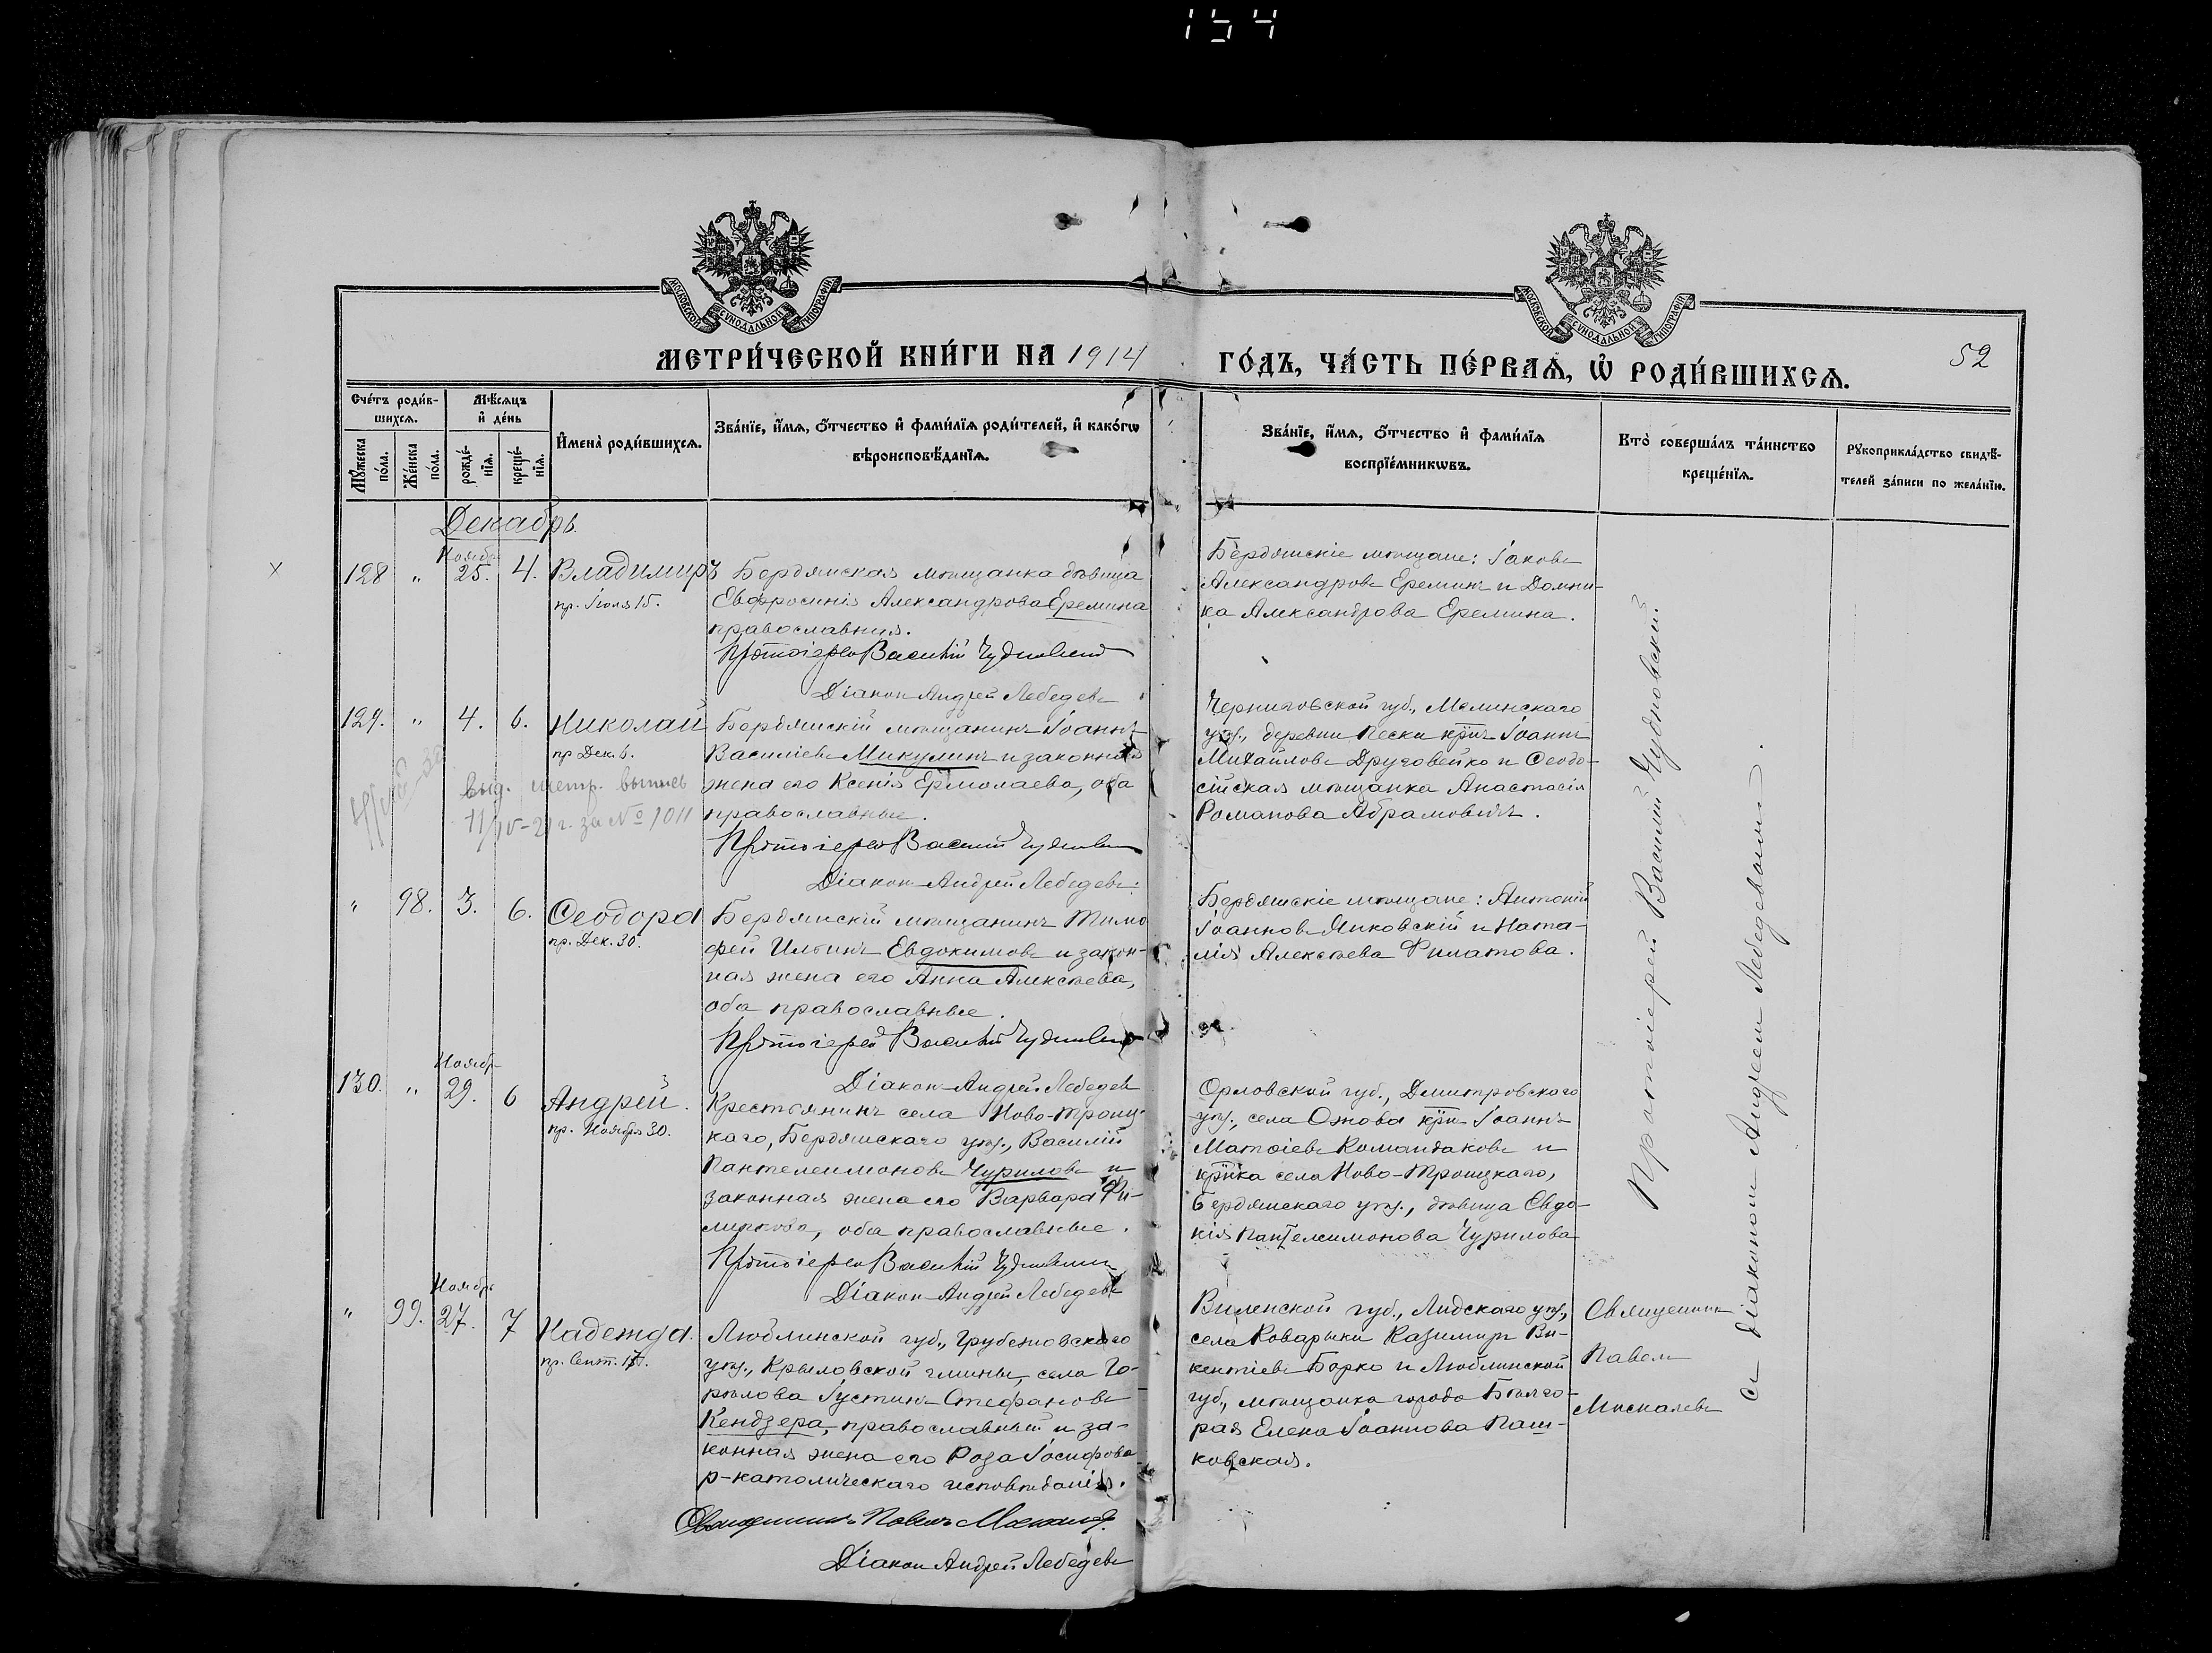 154
МОСКОВСКОЙ СѴНОДАЛЬНОЙ ТИПОГРАФІИ
МОСКОВСКОЙ СѴНОДАЛЬНОЙ ТИПОГРАФІИ
МЕТРИ́ЧЕСКОЙ КНИ́ГИ НА 1914
ГО́ДЪ, ЧА́СТЬ ПЕ́РВАѦ, Ѡ҆ РОДИ́ВШИХСѦ.
52
Сче́тъ роди́в-
шихсѧ.
Мꙋ́жеска по́ла.
Же́нска по́ла.
Мѣ́сѧцъ
и҆ де́нь
рожде́-
нїѧ.
креще́-
нїѧ.
И҆мена̀ роди́вшихсѧ.
Зва́нїе, и҆́мѧ, ѻ҆́тчество и҆ фами́лїѧ роди́телей, и҆ како́гѡ
вѣроисповѣ́данїѧ.
Зва́нїе, и҆́мѧ, ѻ҆́тчество и҆ фами́лїѧ
воспрїе́мникѡвъ.
Кто̀ соверша́лъ та́инство
креще́нїѧ.
Рꙋкоприкла́дство свидѣ́-
телей за́писи по жела́нїю.
Декабрь.
128 " Ноябр. 25. 4. Владимиръ
пр. Іюля 15.
Бердянская мѣщанка дѣвица
Евфросинія Александрова Еремина
православная.
Протоіерей Василій Чудновскій
Діаконъ Андрей Лебедевъ
Бердянскіе мѣщане: Іаковъ
Александровъ Ереминъ и Домни-
ка Александрова Еремина.
129. " 4. 6. Николай
пр. Дек. 6.
выд. метр. выпись
11/IV-21 г. за № 1011
Бердянскій мѣщанинъ Іоаннъ
Василіевъ Микулинъ и законная
жена его Ксенія Ермолаева, оба
православные.
Протоіерей Василій Чудновскій
Діаконъ Андрей Лебедевъ.
Черниговской губ., Мглинскаго
уѣз., деревни Пески кр-нъ Іоаннъ
Михайловъ Друговейко и Ѳеодо-
сійская мѣщанка Анастасія
Романова Абрамовичъ.
" 98. 3. 6. Ѳеодора
пр. Дек. 30.
Бердянскій мѣщанинъ Тимо
фей Ильинъ Евдокимовъ и закон-
ная жена его Анна Алексѣева,
оба православные.
Протоіерей Василій Чудновскій
Діаконъ Андрей Лебедевъ
Бердянскіе мѣщане: Антоній
Іоанновъ Янковскій и Ната-
лія Алексѣева Филатова.
130. " Ноябр. 29. 6 Андрей.
пр. Ноября 30.
Крестьянинъ села Ново-Троиц-
каго, Бердянскаго уѣз., Василій
Пантелеимоновъ Чуриловъ и
законная жена его Варвара Фи-
липпова, оба православные.
Протоіерей Василій Чудновскій
Діаконъ Андрей Лебедевъ
Орловской губ., Дмитровскаго
уѣз., села кр-нъ Іоаннъ
Матѳіевъ Командаковъ и
кр-нка села Ново-Троицкаго,
Бердянскаго уѣз., дѣвица Евдо-
кія Пантелеимонова Чурилова
" 99. Ноябрь 27. 7 Надежда.
пр. Сент. 17.
Люблинской губ., Грубешовскаго
уѣз., Крыловской гмины, села Го-
рылова Іустинъ Стефановъ
Кендзера, православный и за-
конная жена его Роза Іосифова
р-католическаго исповѣданія.
Священникъ Павелъ Москалевъ
Діаконъ Андрей Лебедевъ
Виленской губ., Лидскаго уѣз.,
села Коварыки Казимиръ Ви-
кентіевъ Борко и Люблинской
губ., мѣщанка города Бѣлго-
рая Елена Іоаннова Паш-
ковская.
Священникъ
Павелъ
Москалевъ
Протоіерей Василій Чудновскій
съ діакономъ Андреемъ Лебедевымъ.